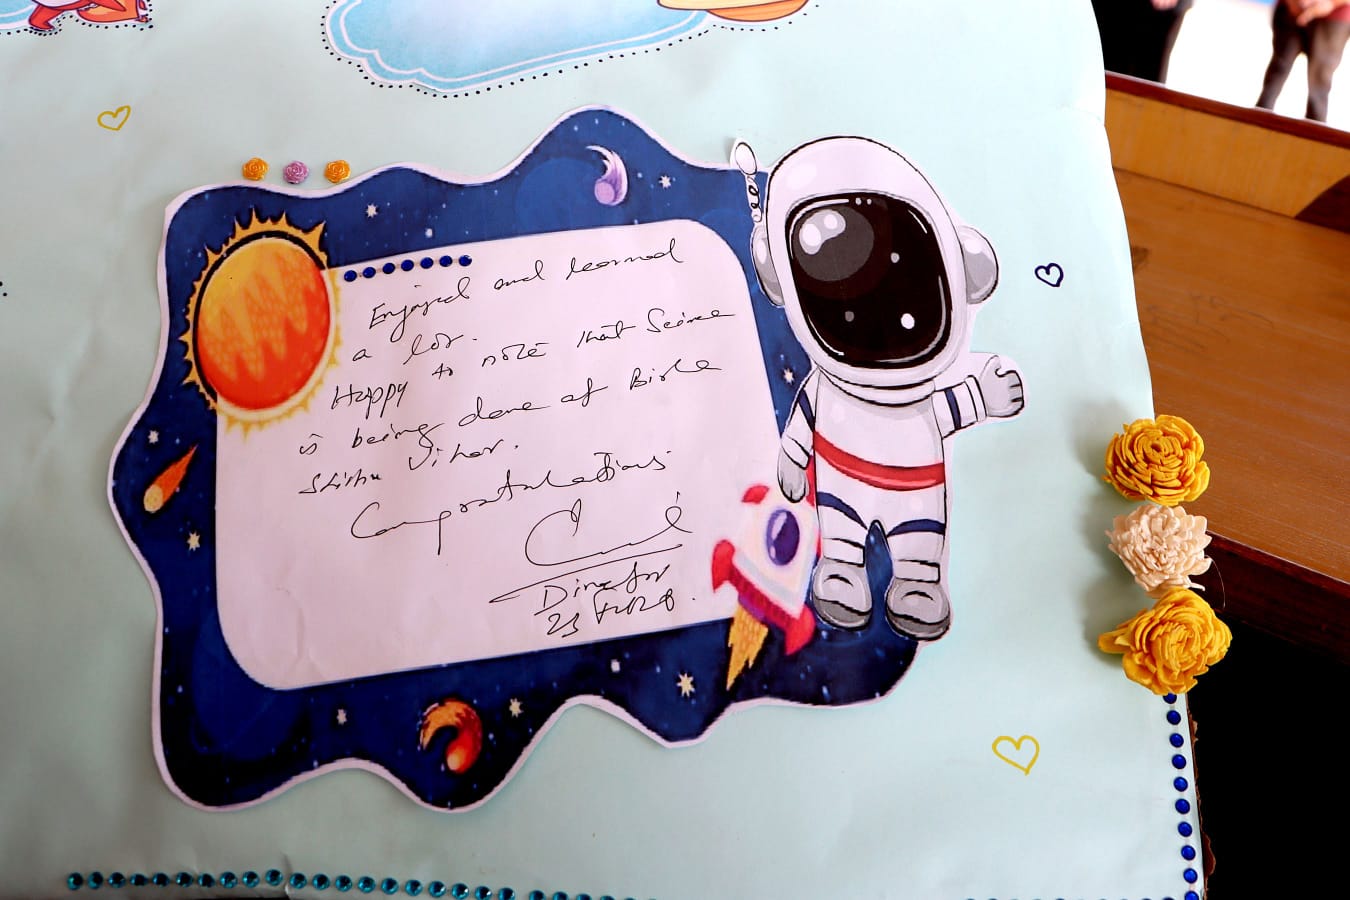 Enjoyed and learned
a lot.
Happy to note that Science
is being done at Birla
Shishu Vihar.
Congratulations
Director